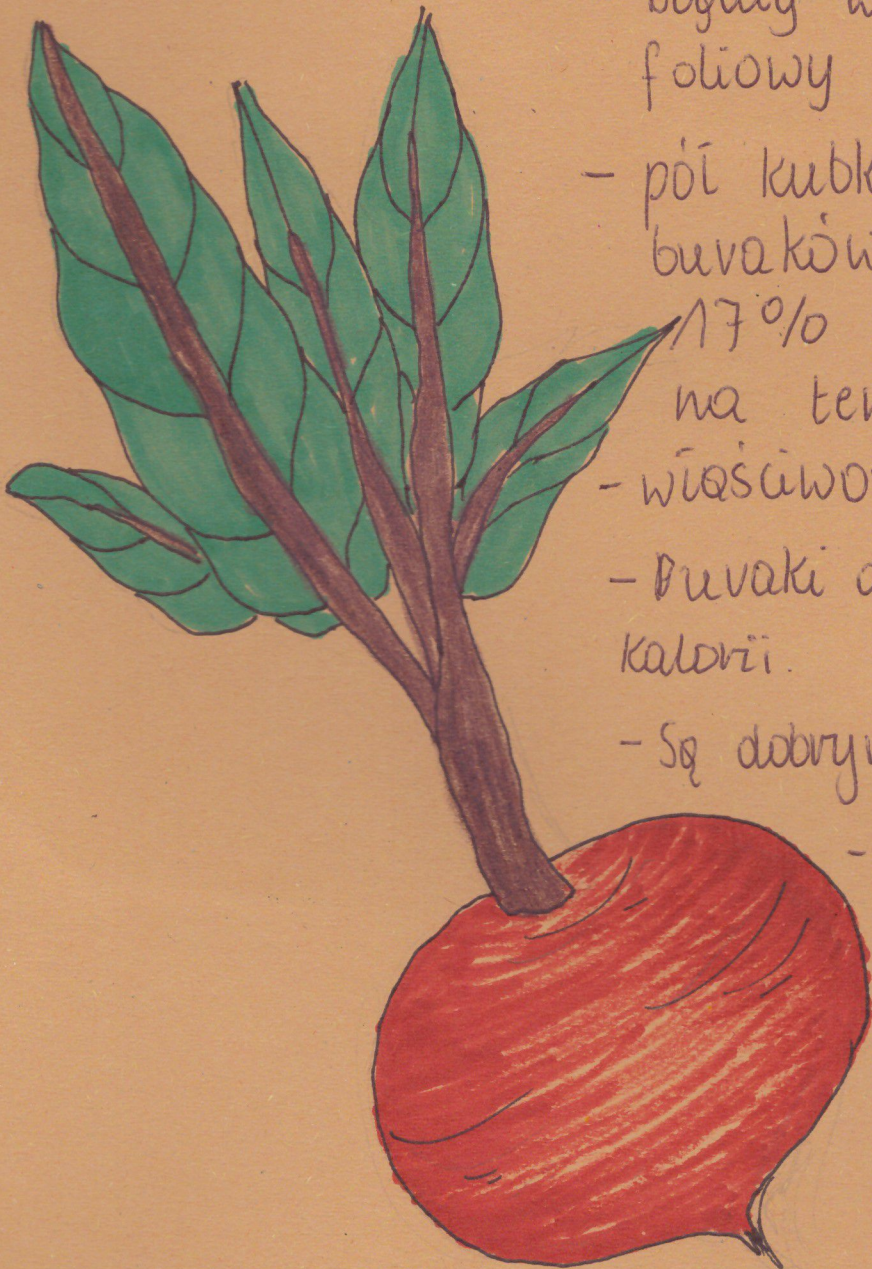 bogaty w
foliowy
- pół kubk
buraków
17%
na
- właściwo
- Buraki
kalorii.
- Są dobry
-